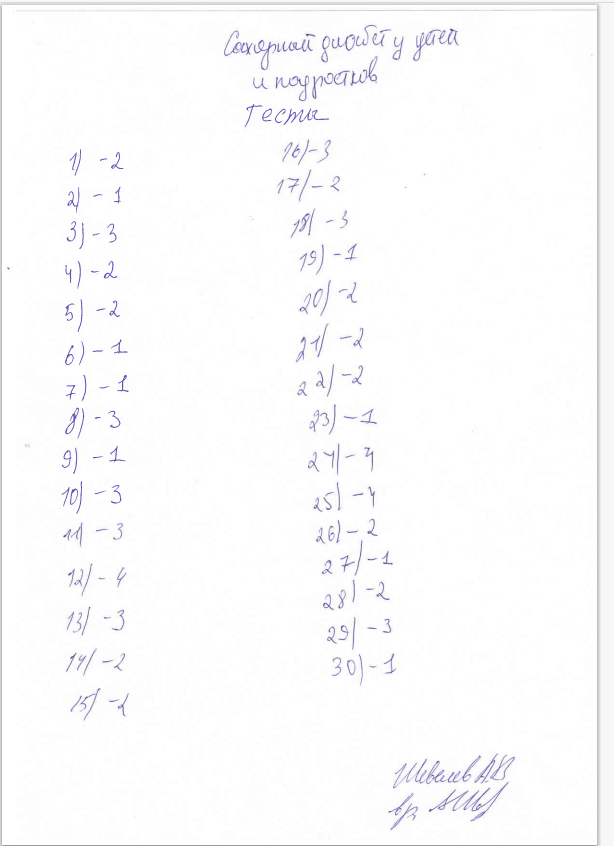 Сахарный диабет у детей
и подростков
Тесты
1) -2
2) - 1
3) - 3
4) - 2
5) - 2
6) - 1
7) - 1
8) - 3
9) - 1
10) - 3
11) - 3
12) - 4
13) - 3
14) - 2
15) - 2
16) - 3
17) - 2
18) - 3
19) - 1
20) - 2
21) - 2
22) - 2
23) - 1
24) - 4
25) - 4
26) - 2
27) - 1
28) - 2
29) - 3
30) - 1
Шевелев АВ
вр.